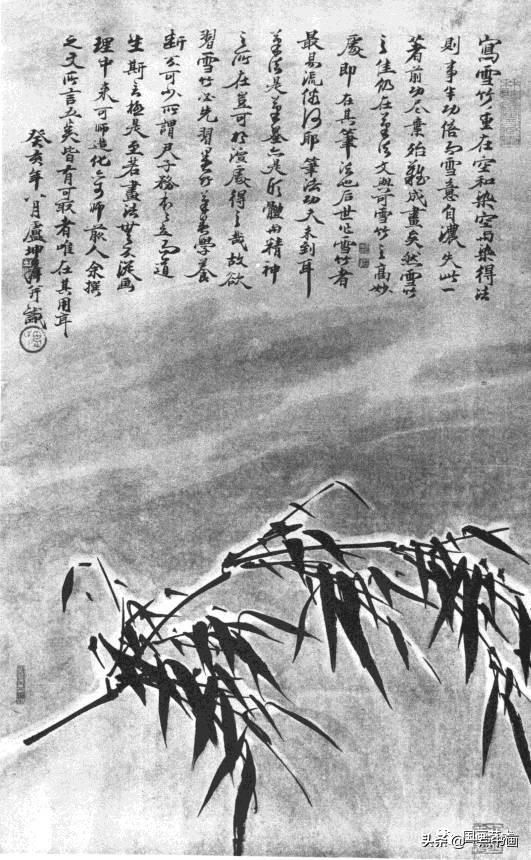 寫雪竹重在空和染空而染得法
則事半功倍而雪意自濃失此一
著前功尽棄殆難成畫矣然雪竹
之佳仍在筆法文与可雪竹之高妙
處即在其筆法也后世作雪竹者
最易流俗何耶筆法功夫未到耳
筆法是筆墨亦是形體而精神
之所在豈可於處得之哉故欲
習雪竹必先習墨竹筆墨學養
断不可少所謂君子務本本立而道
生斯言極是至若畫法
理中来可師造化亦可師前人余撰
之文所言矣皆有可取者唯在其用耳
癸亥年八月盧坤峰并識
头条@